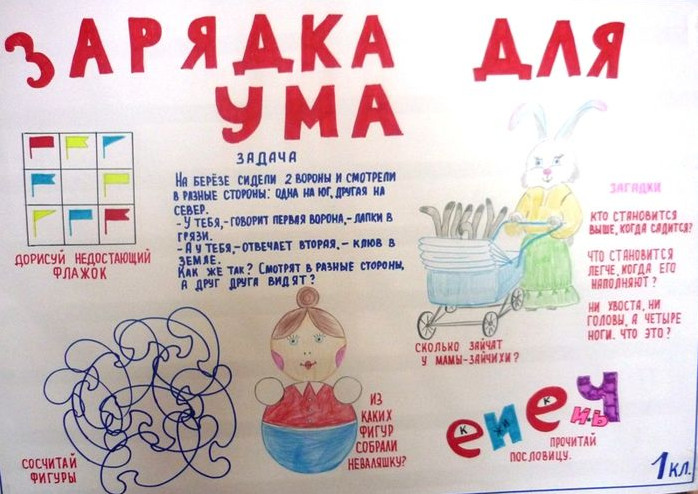 ЗАРЯДКА ДЛЯ
УМА
ЗАДАЧА
НА БЕРЁЗЕ СИДЕЛИ 2 ВОРОНЫ И СМОТРЕЛИ
В РАЗНЫЕ СТОРОНЫ: ОДНА НА ЮГ, ДРУГАЯ НА
СЕВЕР.
- У ТЕБЯ,- ГОВОРИТ ПЕРВАЯ ВОРОНА,- ЛАПКИ В
ГРЯЗИ.
- А У ТЕБЯ,- ОТВЕЧАЕТ ВТОРАЯ,- КЛЮВ В
ЗЕМЛЕ.
КАК ЖЕ ТАК? СМОТРЯТ В РАЗНЫЕ СТОРОНЫ,
А ДРУГ ДРУГА ВИДЯТ?
ДОРИСУЙ НЕДОСТАЮЩИЙ
ФЛАЖОК
ЗАГАДКИ
КТО СТАНОВИТСЯ
ВЫШЕ, КОГДА САДИТСЯ?
ЧТО СТАНОВИТСЯ
ЛЕГЧЕ, КОГДА ЕГО
НАПОЛНЯЮТ?
НИ ХВОСТА, НИ
ГОЛОВЫ, А ЧЕТЫРЕ
НОГИ. ЧТО ЭТО?
СКОЛЬКО ЗАЙЧАТ
У МАМЫ-ЗАЙЧИХИ?
СОСЧИТАЙ
ФИГУРЫ
ИЗ
КАКИХ
ФИГУР
СОБРАЛИ
НЕВАЛЯШКУ?
е и е Ч
К ЖИ К И Ь
ПРОЧИТАЙ
ПОСЛОВИЦУ.
1 КЛ.